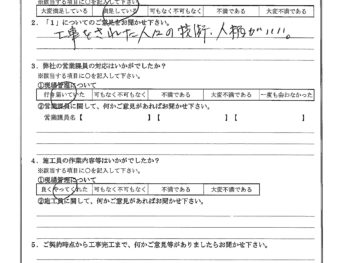 ※該当する項目に○を記入して下さい。
大変満足している 満足している 可もなく不可もなく 不満である 大変不満である
2．「1」についてのご意見をお聞かせ下さい。
工事をされた人々の技術、人柄がいい。
3．弊社の営業課員の対応はいかがでしたか？
※該当する項目に○を記入して下さい。
①現場管理について
行き届いていた 可もなく不可もなく 不満である 大変不満である 一度も会わなかった
②営業課員に関して、何かご意見があればお聞かせ下さい。
営業課員名【 】【 】【 】
4．施工員の作業内容等はいかがでしたか？
※該当する項目に○を記入して下さい。
①現場管理について
良くやってくれた 可もなく不可もなく 不満である 大変不満である
②施工員に関して、何かご意見があればお聞かせ下さい。
5．ご契約時点から工事完工まで、何かご意見等がありましたらお聞かせ下さい。